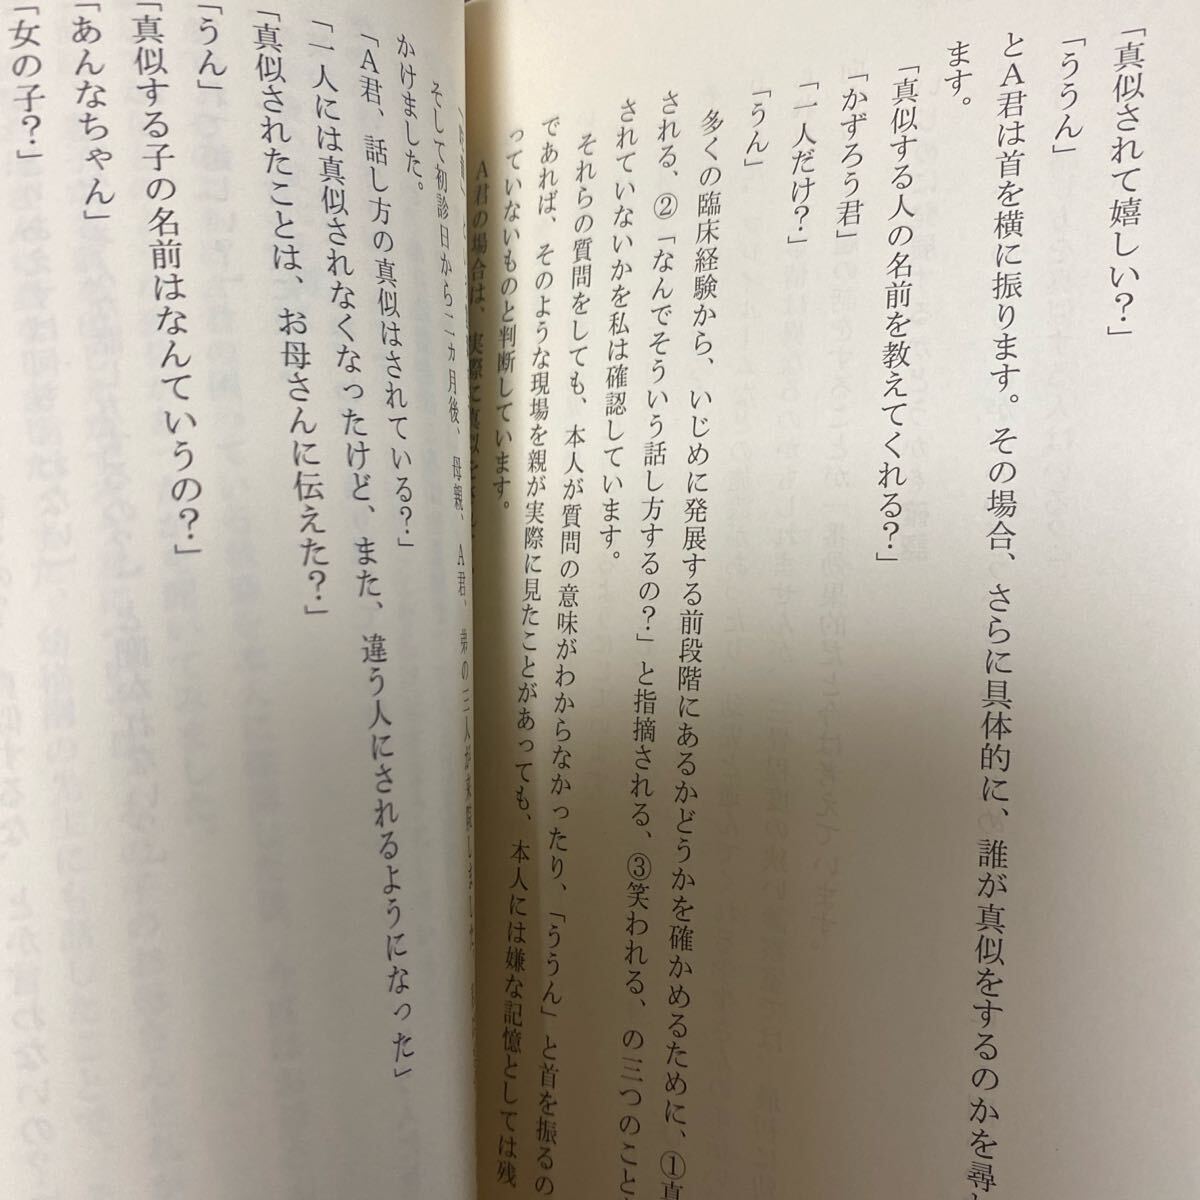 「真似されて嬉しい？」
「ううん」
とＡ君は首を横に振ります。その場合、さらに具体的に、誰が真似をするのかを尋ね
ます。
「真似する人の名前を教えてくれる？」
「かずろう君」
「一人だけ？」
「うん」
多くの臨床経験から、いじめに発展する前段階にあるかどうかを確かめるために、①真
される、②「なんでそういう話し方するの？」と指摘される、③笑われる、の三つのこと
されていないかを私は確認しています。
それらの質問をしても、本人が質問の意味がわからなかったり、「ううん」と首を振るの
であれば、そのような現場を親が実際に見たことがあっても、本人には嫌な記憶としては残
っていないものと判断しています。
Ａ君の場合は、実際に真似を
そして初診日から二ヵ月後、母親、Ａ君、弟の三人が来院しました。
かけました。
「Ａ君、話し方の真似はされている？」
「一人には真似されなくなったけど、また、違う人にされるようになった」
「真似されたことは、お母さんに伝えた？」
「うん」
「真似する子の名前はなんていうの？」
「あんなちゃん」
「女の子？」